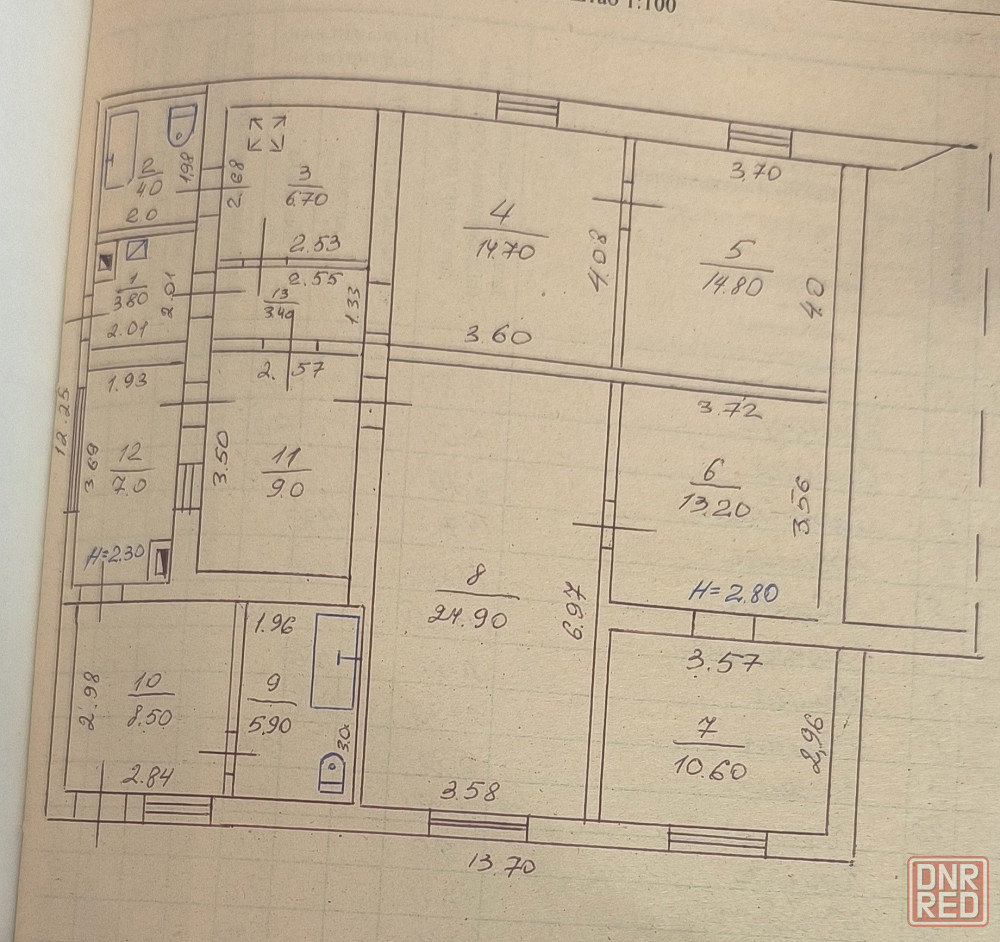 1:100
2
4.0
1.98
2.0
2.68
3
6.70
2.53
4
14.70
4.08
3.60
3.70
5
14.80
4.0
1
3.80
2.01
2.01
13
3.40
2.55
1.33
12.25
1.93
3.69
12
7.0
H=2.30
2.57
3.50
11
9.0
3.72
6
13.20
3.56
H=2.80
8
24.90
6.97
3.58
2.98
10
8.50
2.84
1.96
9
5.90
3.0
3.57
7
10.60
2,96
13.70
DNR
RED